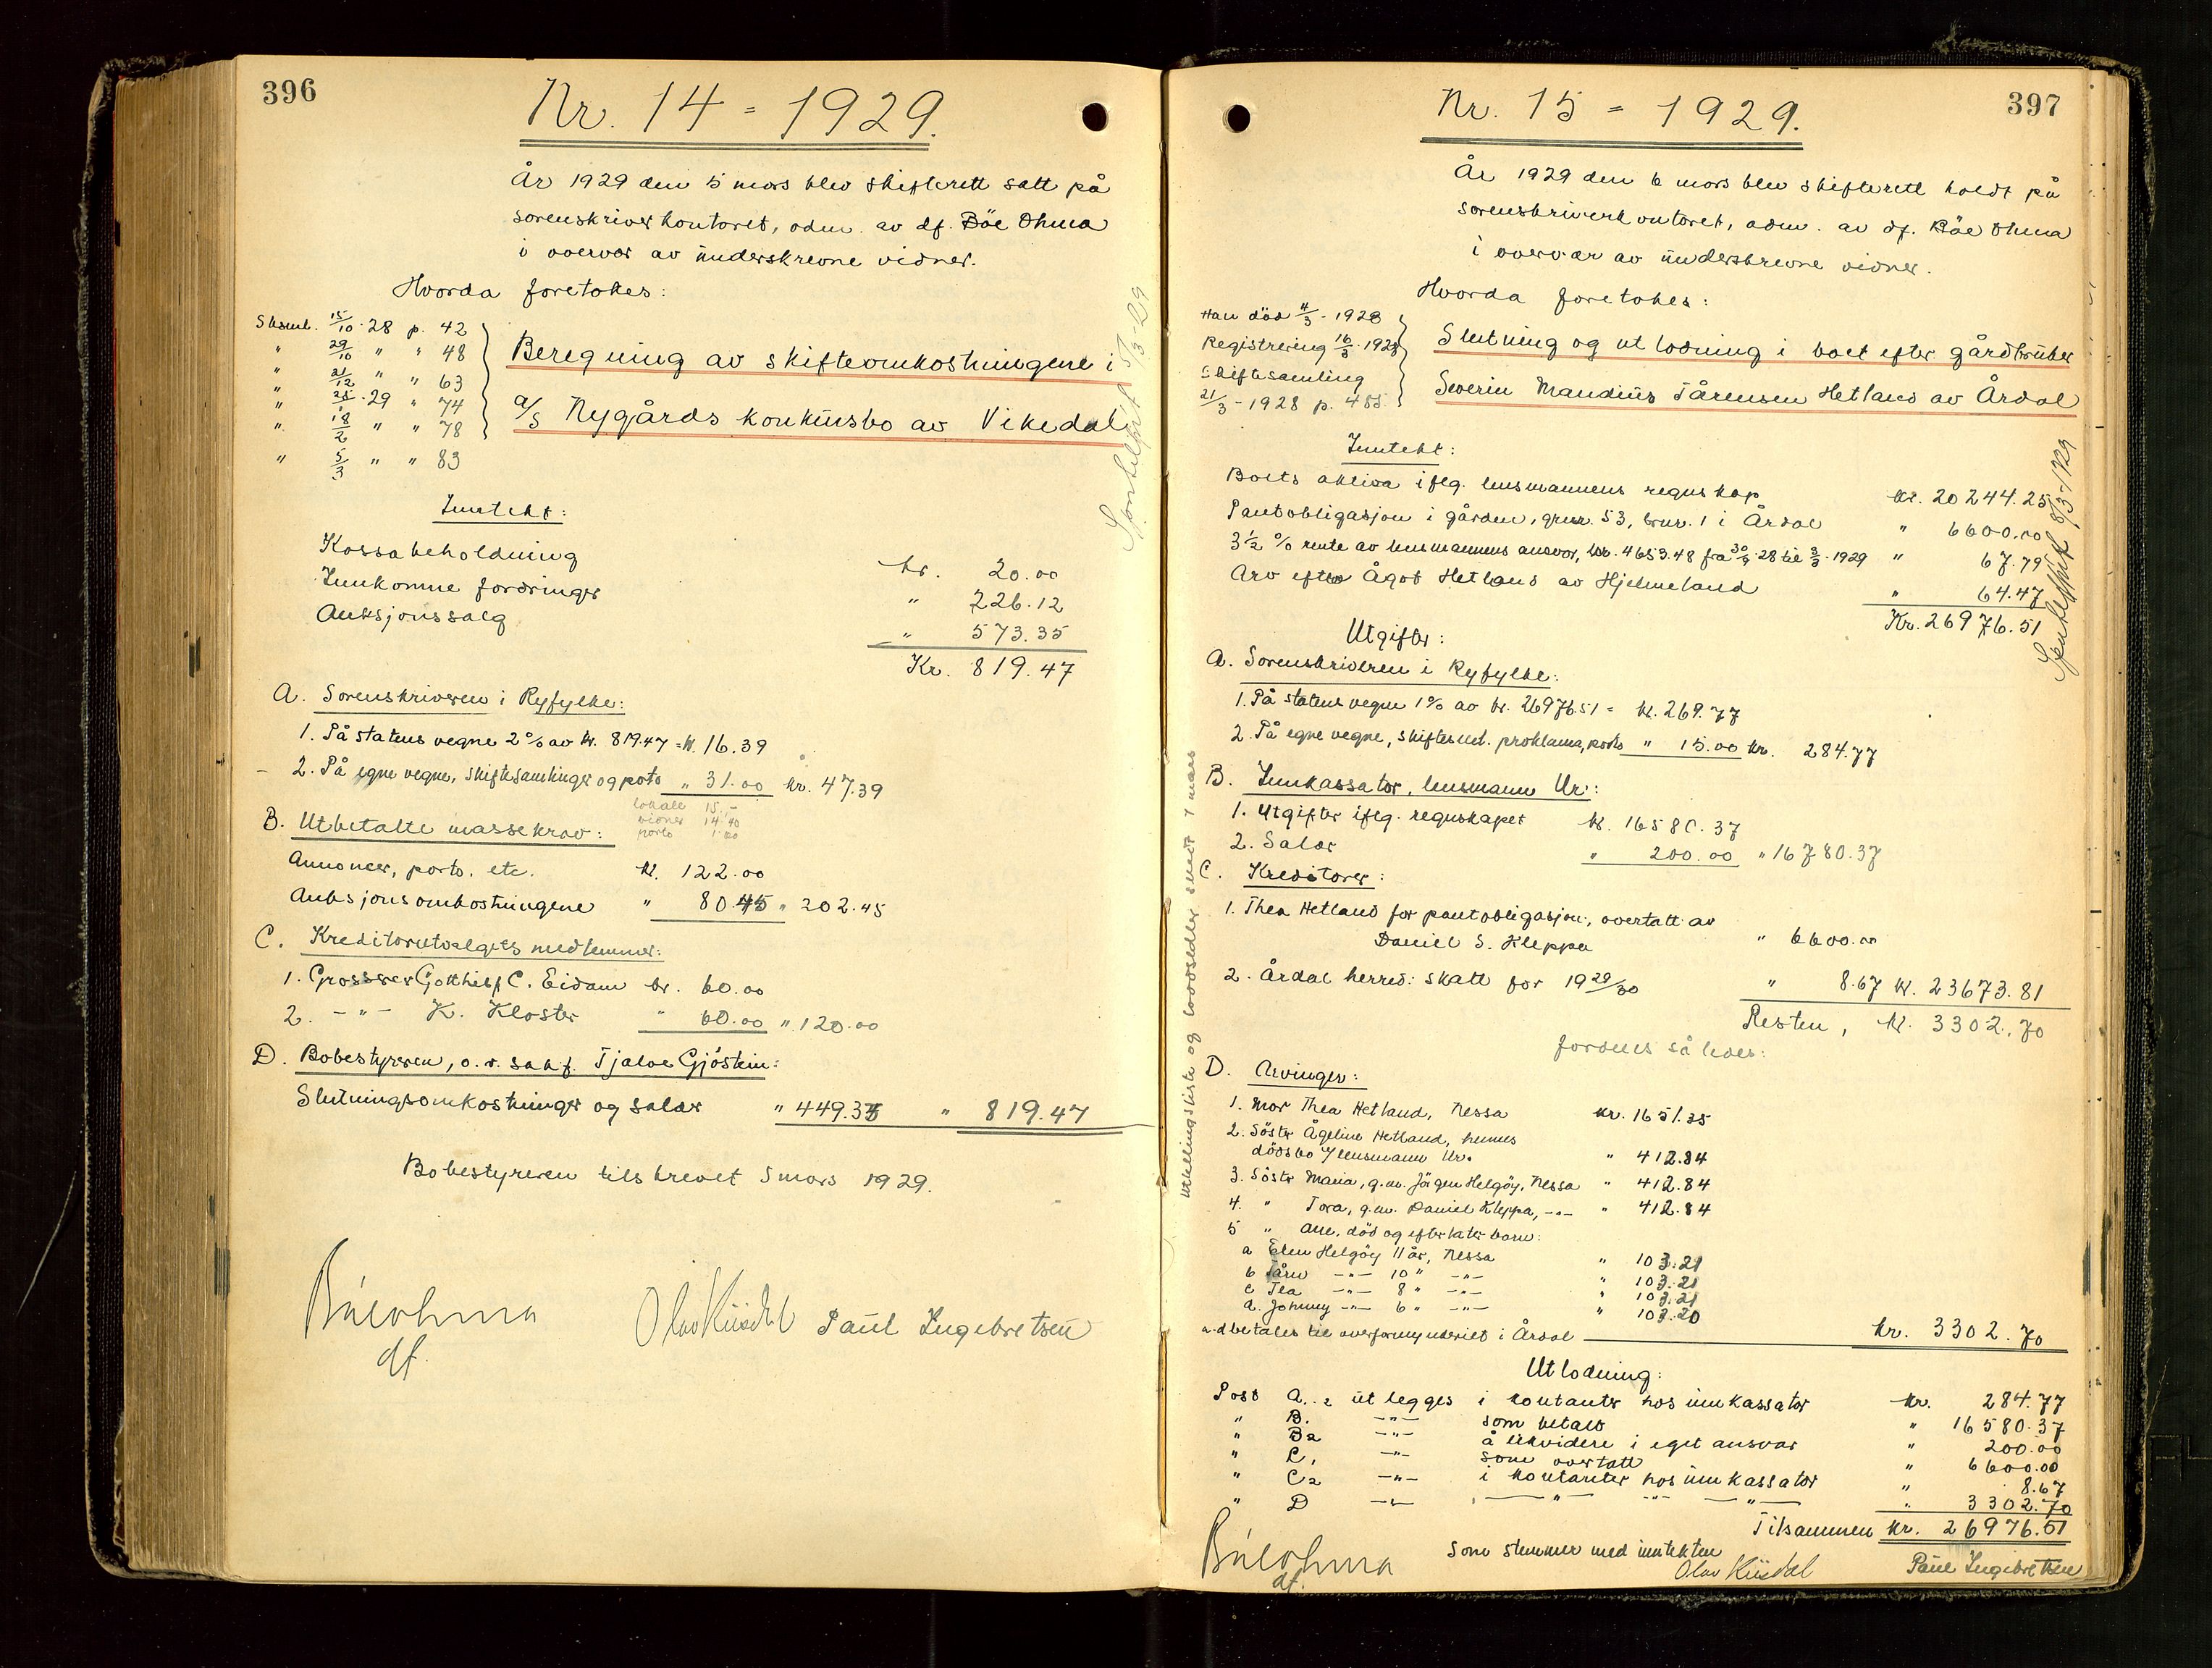 396
Nr. 14 = 1929.
År 1929 den 5 mars blev skifterett satt på
sorenskriverkontoret, adm. av df. Böe Ohma
i overvær av underskrevne vidner.
Hvorda foretokes:
Sksml. 15/10·28 p. 42
" 29/10 " " 48
" 21/12 " " 63
" 25/1·29 " 74
" 18/2 " " 78
" 5/3 " " 83
Beregning av skifteomkostningene i
a/s Nygårds konkursbo av Vikedal
5/3-29
Inntekt:
Kassabeholdning kr. 20.00
Innkomne fordringer " 226.12
Auksjonssalg " 573.35
Kr. 819.47
A. Sorenskriveren i Ryfylke:
1. På statens vegne 2% av kr. 819.47 = kr. 16.39
2. På egne vegne, skiftesamlinger og porto " 31.00 kr. 47.39
lokale 15.-
vidner 14.40
porto 1.60
B. Utbetalte massekrav:
Annoncer, porto. etc. kr. 122.00
Auksjonsomkostningene " 80.45 " 202.45
C. Kreditorutvalgets medlemmer:
1. Grosserer Gotthilf C. Eidam kr. 60.00
2. -"- K. Kloster " 60.00 " 120.00
D. Bobestyreren, o.r. sakf. Tjalve Gjöstein:
Slutningsomkostninger og salær " 449.63 " 819.47
Bobestyreren tilskrevet 5 mars 1929.
Böeohma
df.
Olav Küsdal Paul Ingebretsen
397
Nr. 15 = 1929.
År 1929 den 6 mars blev skifterett holdt på
sorenskriverkontoret, adm. av df. Böe Ohma
i overvær av underskrevne vidner.
Hvorda foretokes:
Han död 4/3-1928
Registrering 16/3·1928
Skiftesamling
21/3-1928 p. 455.
Slutning og utlodning i boet efter gårdbruker
Severin Mandius Tårensen Hetland av Årdal
8/3-1929
Inntekt:
Boets aktiva iflg. lensmannens regnskap kr. 20244.25
Pantobligasjon i gården, gnr. 53, brnr. 1 i Årdal " 6600.00
3½ % rente av lensmannens ansvar, kr. 4653.48 fra 30/9·28 til 2/3·1929 " 67.79
Arv efter Ågot Hetland av Hjelmeland " 64.47
Kr. 26976.51
Utgifter:
A. Sorenskriveren i Ryfylke:
1. På statens vegne 1% av kr. 26976.51 = kr. 269.77
2. På egne vegne, skiftesml. proklama, porto " 15.00 kr. 284.77
B. Innkassator, lensmann Ur:
1. Utgifter iflg. regnskapet kr. 16580.37
2. Salær " 200.00 " 16780.37
C. Kreditorer:
1. Thea Hetland for pantobligasjon, overtatt av
Daniel S. Kleppa " 6600.00
2. Årdal herred: skatt for 1929/30 " 8.67 kr. 23673.81
Resten, kr. 3302.70
fordeles således:
D. Arvinger:
1. Mor Thea Hetland, Nessa kr. 1651.35
2. Söster Ågeline Hetland, hennes
dödsbo v/lensmann Ur. " 412.84
3. Söster Maria, g.m. Jörgen Helgöy, Nessa " 412.84
4. " Tora, g.m. Daniel Kleppa, -"- " 412.84
5 " Ane, död og efterlater barn:
a Elen Helgöy 11 år, Nessa " 103.21
b Tårn -"- 10 " -"- " 103.21
c Tea -"- 8 " -"- " 103.21
d. Johnny -"- 6 " -"- " 103.20
a-d betales til overformynderiet i Årdal kr. 3302.70
Utlodning:
Post A1-2 utlegges i kontanter hos innkassator kr. 284.77
" B1 -"- som betalt " 16580.37
" B2 -"- å likvidere i eget ansvar " 200.00
" C1 -"- som overtatt " 6600.00
" C2 -"- i kontanter hos innkassator " 8.67
" D -"- " -"- " " 3302.70
Tilsammen kr. 26976.51
som stemmer med inntekten
Böeohma
df.
Olav Küsdal
Paul Ingebretsen